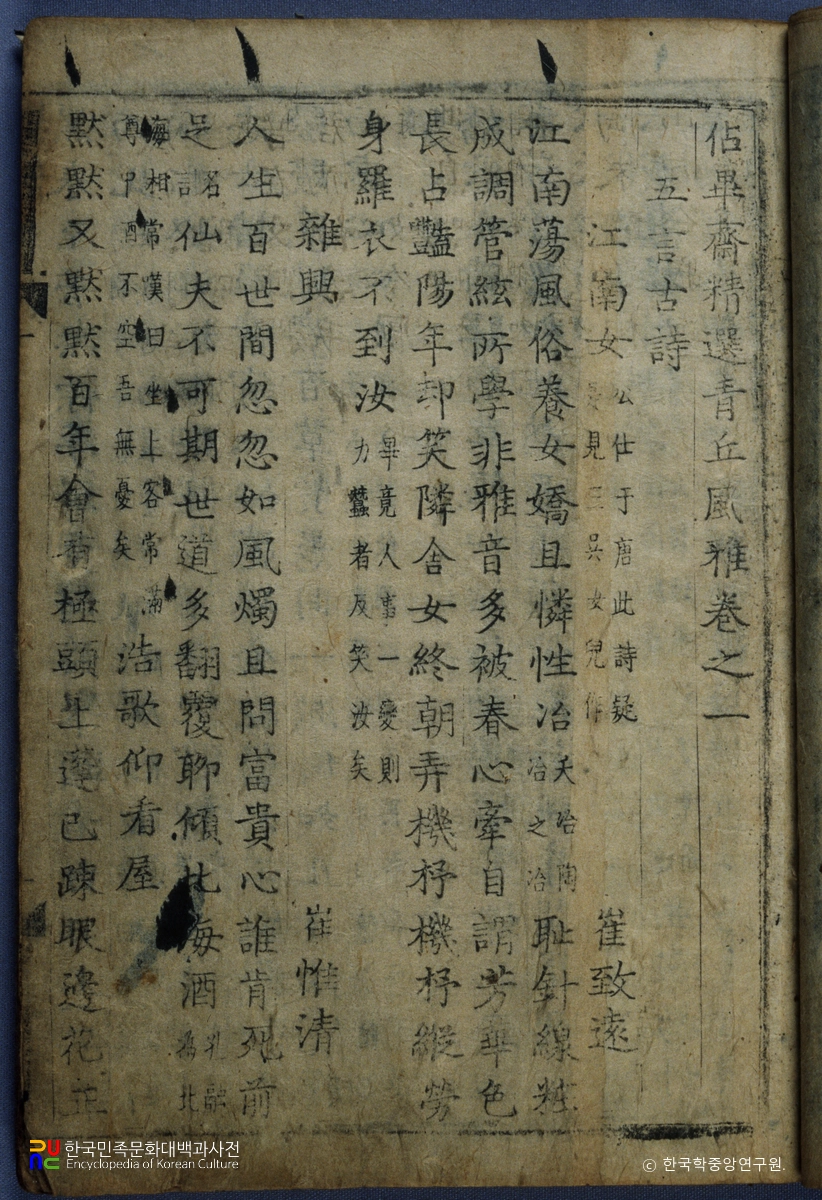 佔畢齋精選青丘風雅卷之一
五言古詩
江南女 公仕于唐此詩疑 見三吳女兒作 崔致遠
江南蕩風俗養女嬌且憐性冶 夭冶陶冶之冶 恥針線粧
成調管絃所學非雅音多被春心牽自謂芳華色
長占豔陽年却笑隣舍女終朝弄機杼機杼縱勞
身羅衣不到汝 畢竟人事一變則力蠶者反笑汝矣
雜興 崔惟清
人生百世間忽忽如風燭且問富貴心誰肯死前
足 名言 仙夫不可期世道多翻覆聊傾北海酒 孔融爲北
海相常漢曰坐上客常滿尊中酒不空吾無憂矣 浩歌仰看屋
默默又默默百年會有極頭上髮已疎眼邊花正
한국민족문화대백과사전
Encyclopedia of Korean Culture
© 한국학중앙연구원.